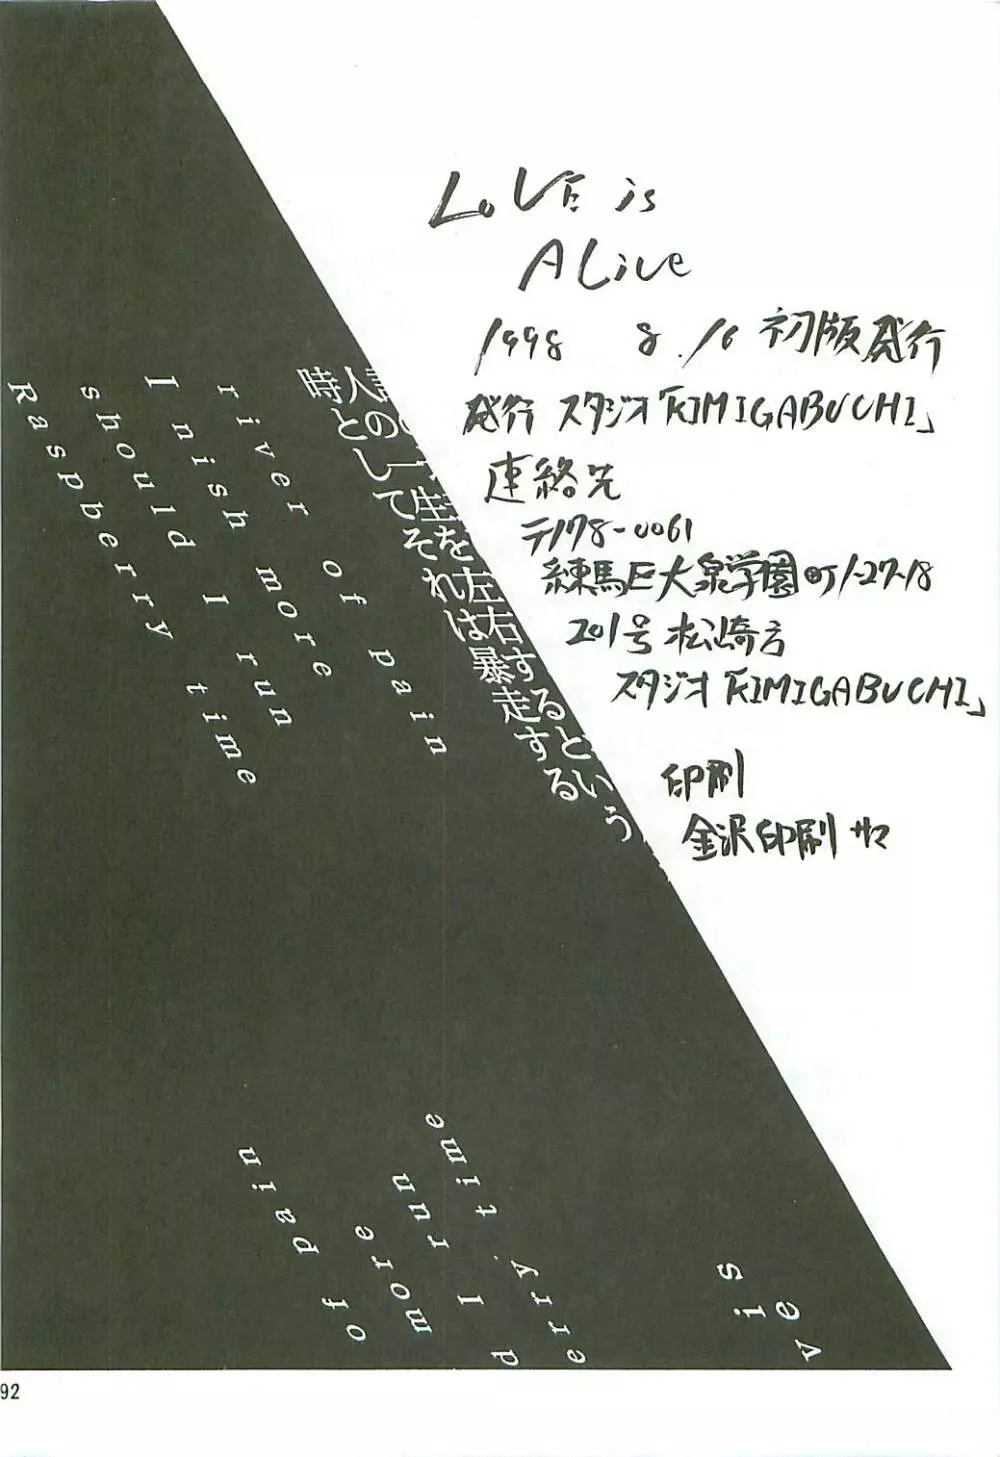 LoVE is
ALive
1998 8.16 初版発行
発行 スタジオ「KIMIGABUCHI」
連絡先
〒178-0061
練馬区大泉学園町1-27-18
201号 松崎方
スタジオ「KIMIGABUCHI」
印刷
金沢印刷サマ
時としてそれは暴走する
人の一生を左右するという
river of pain
I nish more
should I run
Raspberry time
time
run
more
of pain
erry. ti
d I
ve
is
92